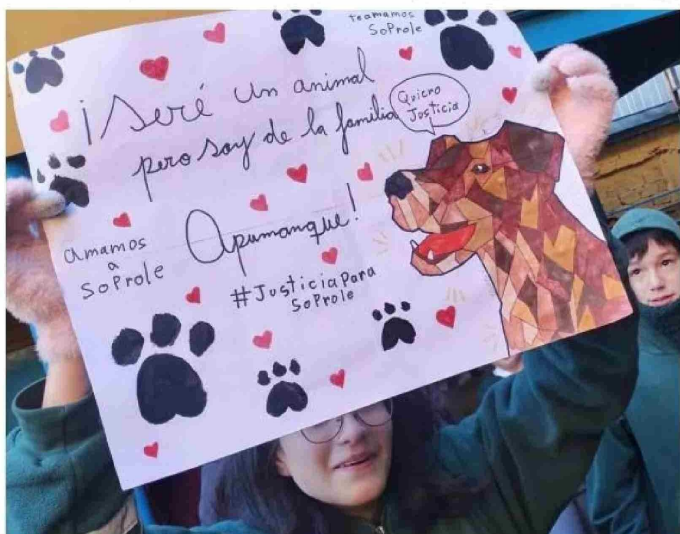 teamamos
SoProle
¡Seré un animal
pero soy de la familia
Quiero
Justicia
Apumanque!
amamos
a
SoProle
#JusticiaPara
SoProle